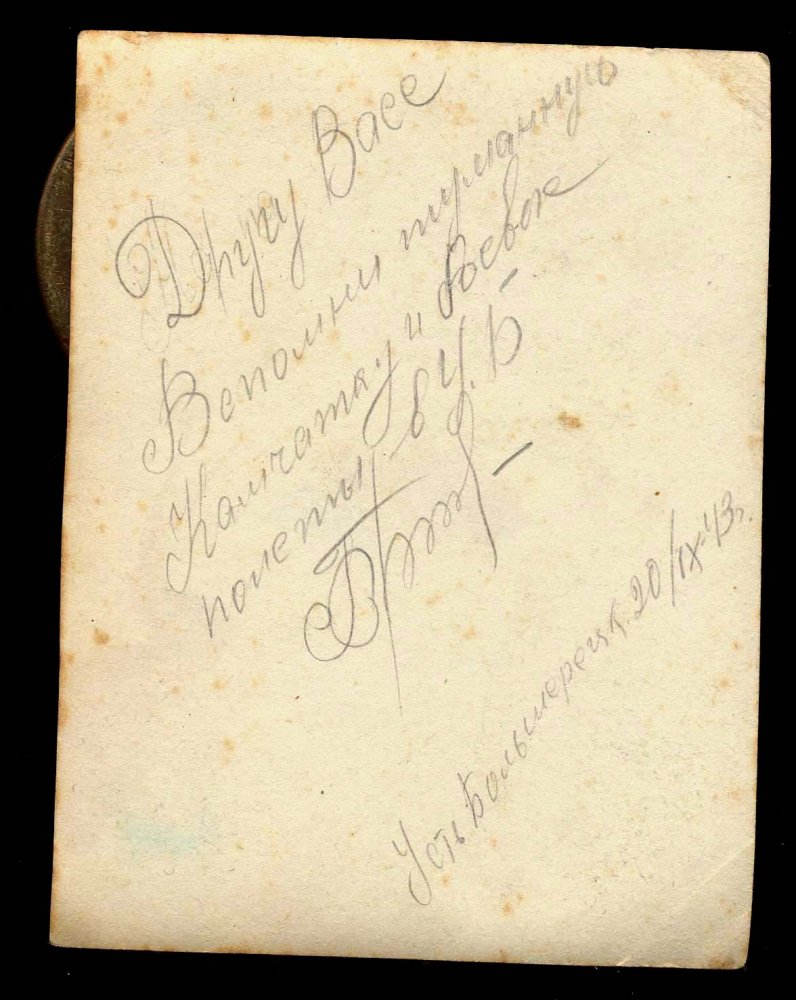 Другу Васе
Вспомни туманную
Камчатку и боевые
полеты в У.Б
Усть Большерецк. 20/IX-43г.